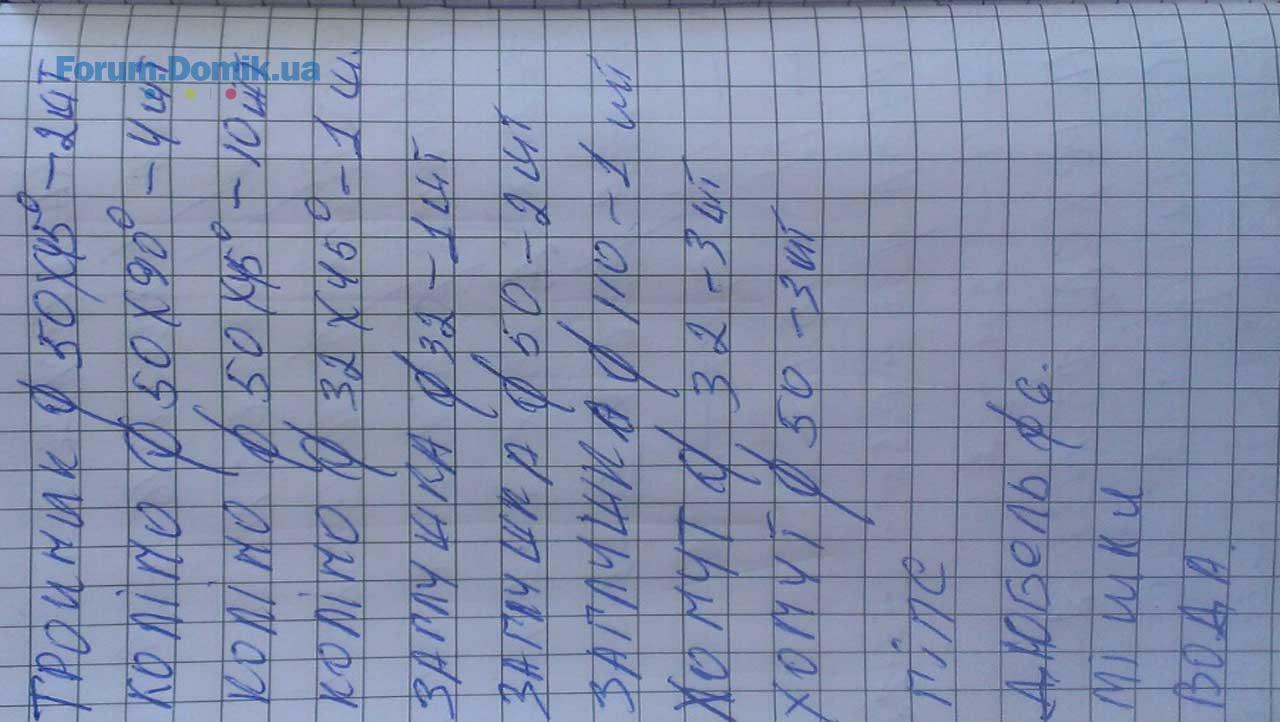 Forum.Domik.ua
ТРОЙНИК ф 50Х45° – 2ШТ
КОЛІНО ф 50Х90° – 4ШТ
КОЛІНО ф 50Х45° – 10Ш
КОЛІНО ф 32Х45° – 1 Ш.
ЗАГЛУШКА ф 32 – 1ШТ
ЗАГЛУШКА ф 50 – 2ШТ
ЗАГЛУШКА ф 110 – 1 ШТ
ХОМУТ ф 32 – 3ШТ
ХОМУТ ф 50 – 3ШТ
ГІПС
ДЮБЕЛЬ ф 6.
МІШКИ
ВОДА